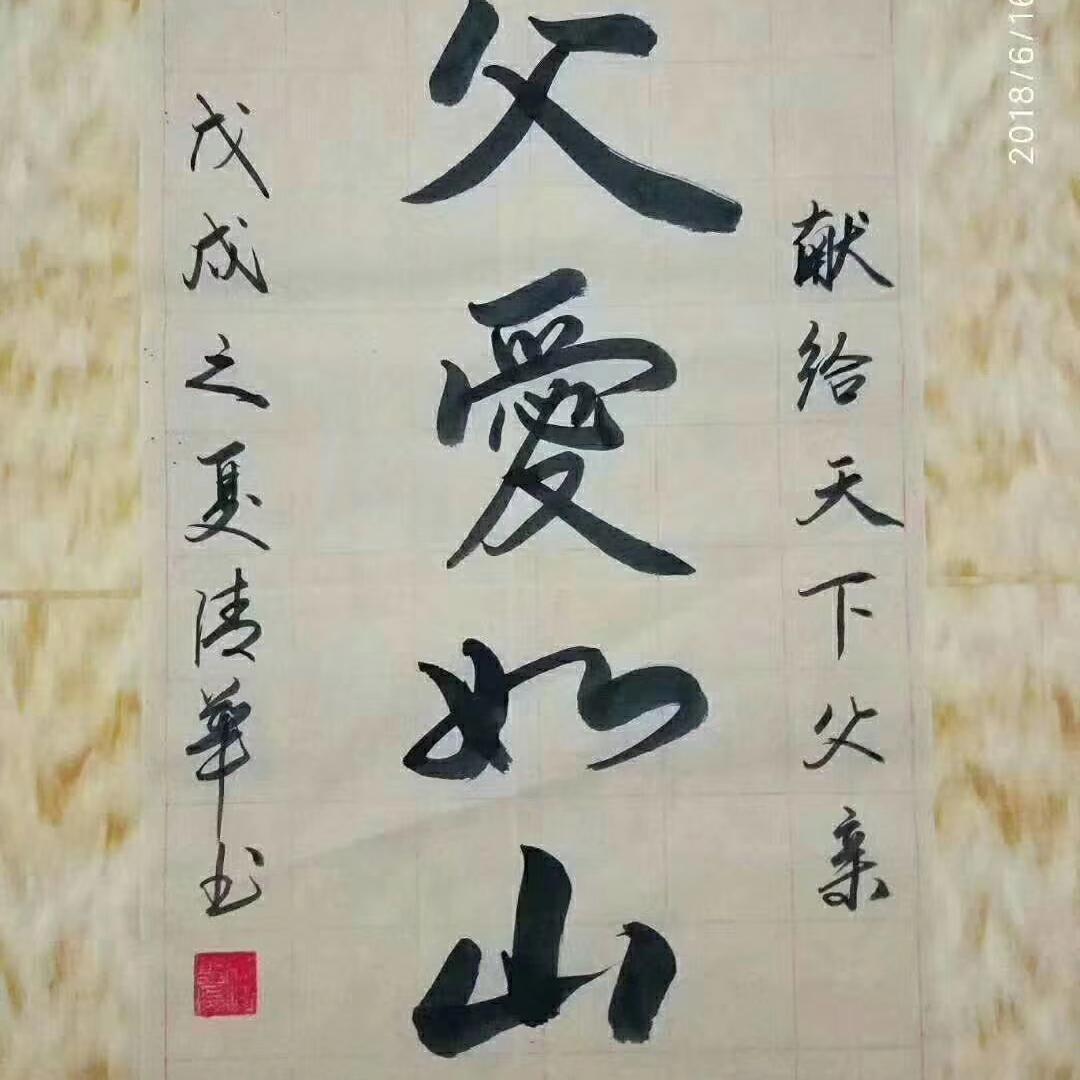 献给天下父亲
父愛如山
戊戌之夏清華书
2018/6/16